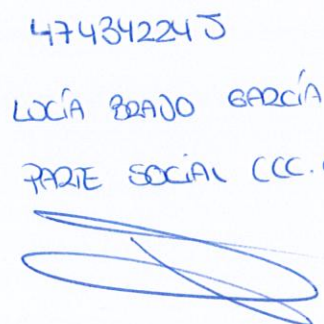 47434224J
LUCÍA BRAVO GARCÍA
PARTE SOCIAL CCC.